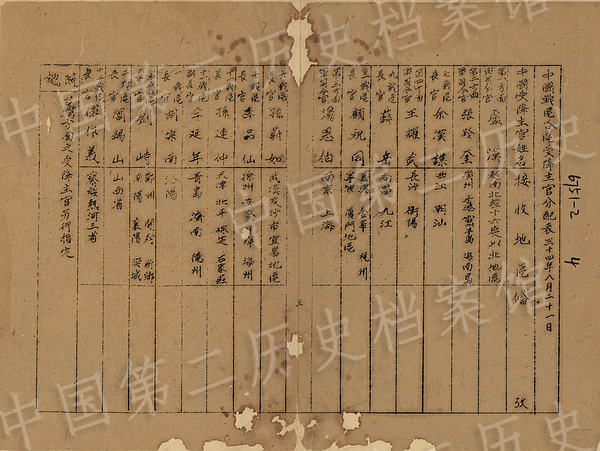 中國戰區各區受降主官分配表 三十四年八月二十一日
中國受降主官姓名 接收地區 備攷
第一方面軍司令官 盧漢 越南北緯十六度以北地區
第二方面軍司令官 張發奎 廣州 香港 雷州半島 海南島
七戰區長官 余漢謀 曲江 潮汕
第四方面軍司令官 王耀武 長沙 衡陽
九戰區長官 薛岳 南昌 九江
三戰區長官 顧祝同 嘉興 金華 杭州 寧波 廈門地區
第三方面軍司令官 湯恩伯 南京 上海
三
六戰區長官 孫蔚如 武漢及沙市宜昌地區
十戰區長官 李品仙 徐州 安慶 蚌埠 海州
十一戰區長官 孫連仲 天津 北平 保定 石家莊
十一戰區副長官 李延年 青島 濟南 德州
一戰區長官 胡宗南 洛陽
劉峙 鄭州 開封 新鄉 南陽 襄陽 樊城
二戰區長官 閻錫山 山西省
十二戰區長官 傅作義 察綏熱河三省
附記
第四方面之受降主官另行指定
4
中国第二历史档案馆
中国第二历史档案馆
中国第二历史